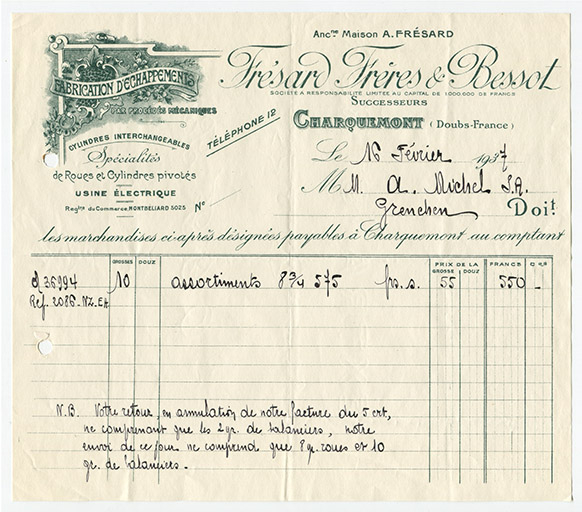 Anc.ne Maison A. FRÉSARD
FABRICATION D'ECHAPPEMENTS
PAR PROCÉDÉS MÉCANIQUES
Frésard Frères & Bessot
SOCIÉTÉ A RESPONSABILITÉ LIMITÉE AU CAPITAL DE 1.000.000 DE FRANCS
SUCCESSEURS
CHARQUEMONT (Doubs-France)
TÉLÉPHONE 12
CYLINDRES INTERCHANGEABLES
Spécialités
de Roues et Cylindres pivotés
USINE ÉLECTRIQUE
Reg.tre du Commerce, MONTBÉLIARD 5025
N°
Le 16 Février 1937
M M. A. Michel S.A.
Grenchen Doit
les marchandises ci-après désignées payables à Charquemont au comptant
GROSSES DOUZ PRIX DE LA GROSSE DOUZ FRANCS C.ES
36994 10 assortiments 8 3/4 575 frs. s. 55 550 -
Ref. 2086-NZ. EA
N.B. Votre retour, en annulation de notre facture du 5 crt,
ne comprenant que les 2 gr. de balanciers, notre
envoi de ce jour ne comprend que 8 gr. roues et 10
gr. de balanciers.-